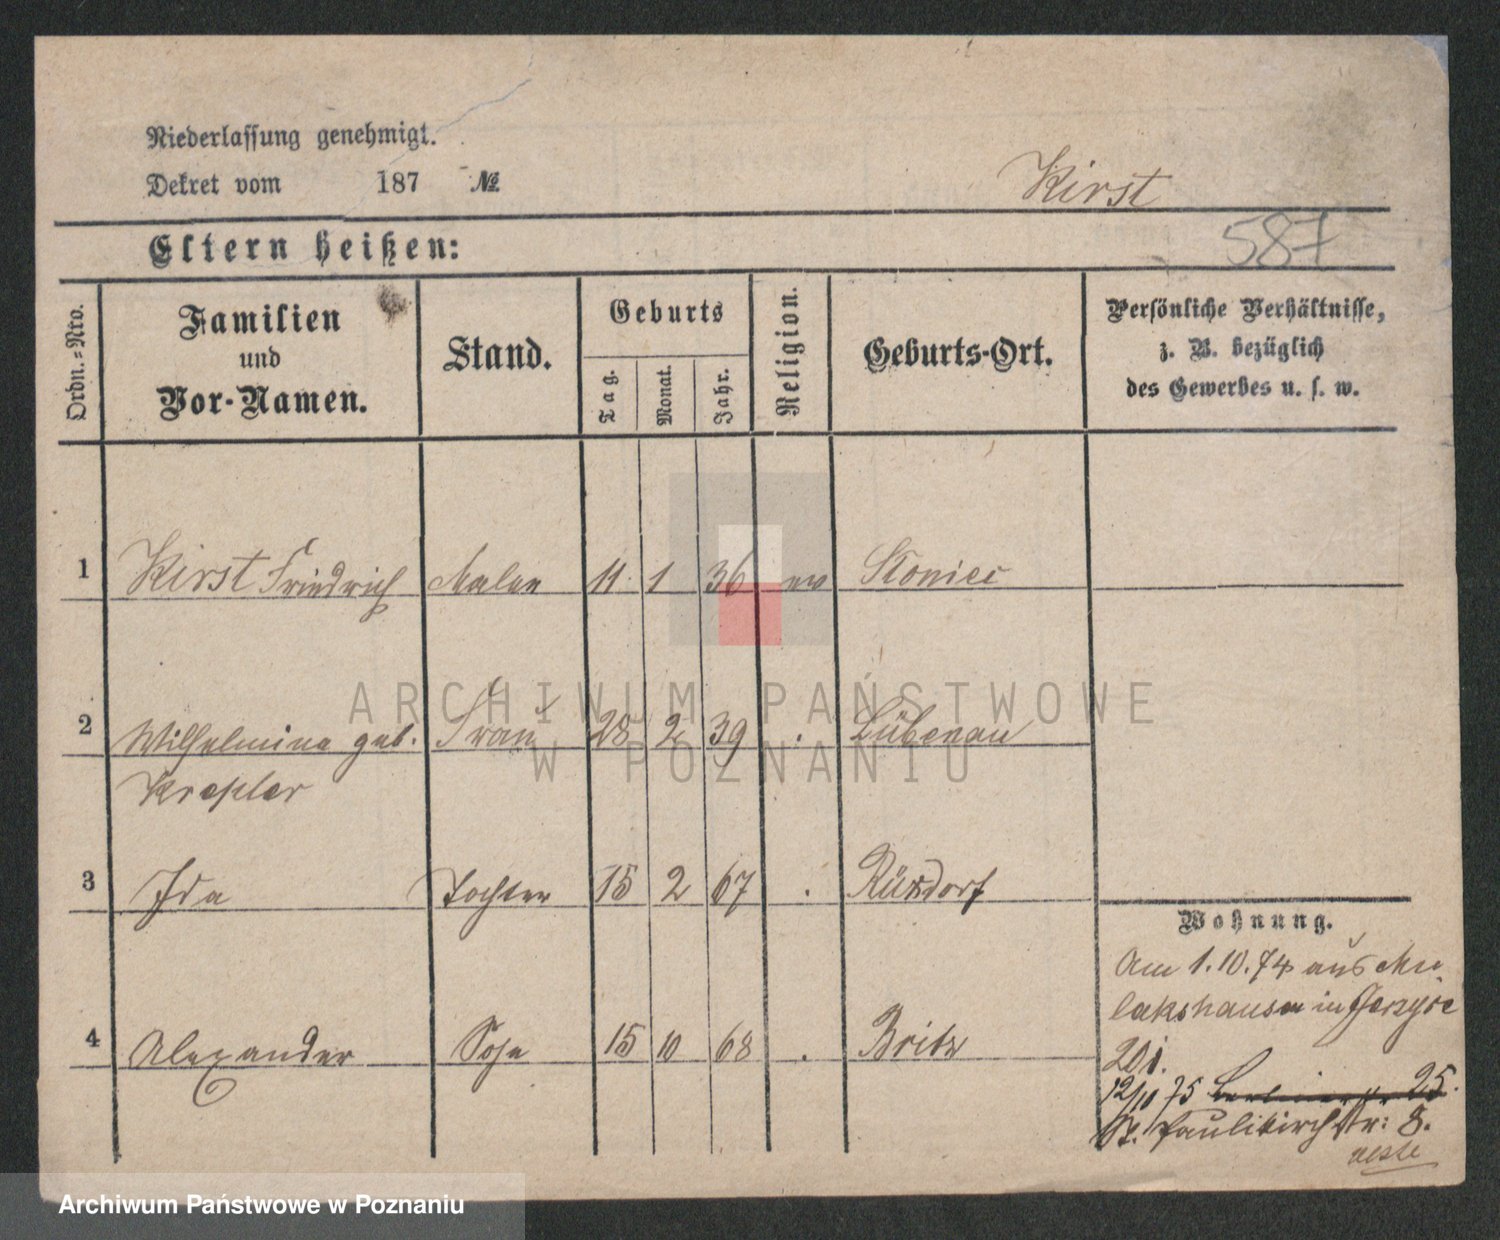 Niederlassung genehmigt.
Dekret vom 187 №
Kirst
Eltern heißen:
587
Ordn.=Nro.
Familien
und
Vor-Namen.
Stand.
Geburts
Tag.
Monat.
Jahr.
Religion.
Geburts-Ort.
Persönliche Verhältnisse,
z. B. bezüglich
des Gewerbes u. s. w.
1 Kirst Friedrich Maler 11 1 36 ev
2 Wilhelmina geb. Frau 28 2 39 . Lübenau
3 Ida Tochter 15 2 67 . Rüxdorf
4 Alexander Sohn 15 10 68 . Britz
Wohnung.
Am 1.10.74 aus Mu
lakshausen in
12/10 75 25.
St. Paulikirchstr: 8.
ARCHIWUM PAŃSTWOWE
W POZNANIU
Archiwum Państwowe w Poznaniu